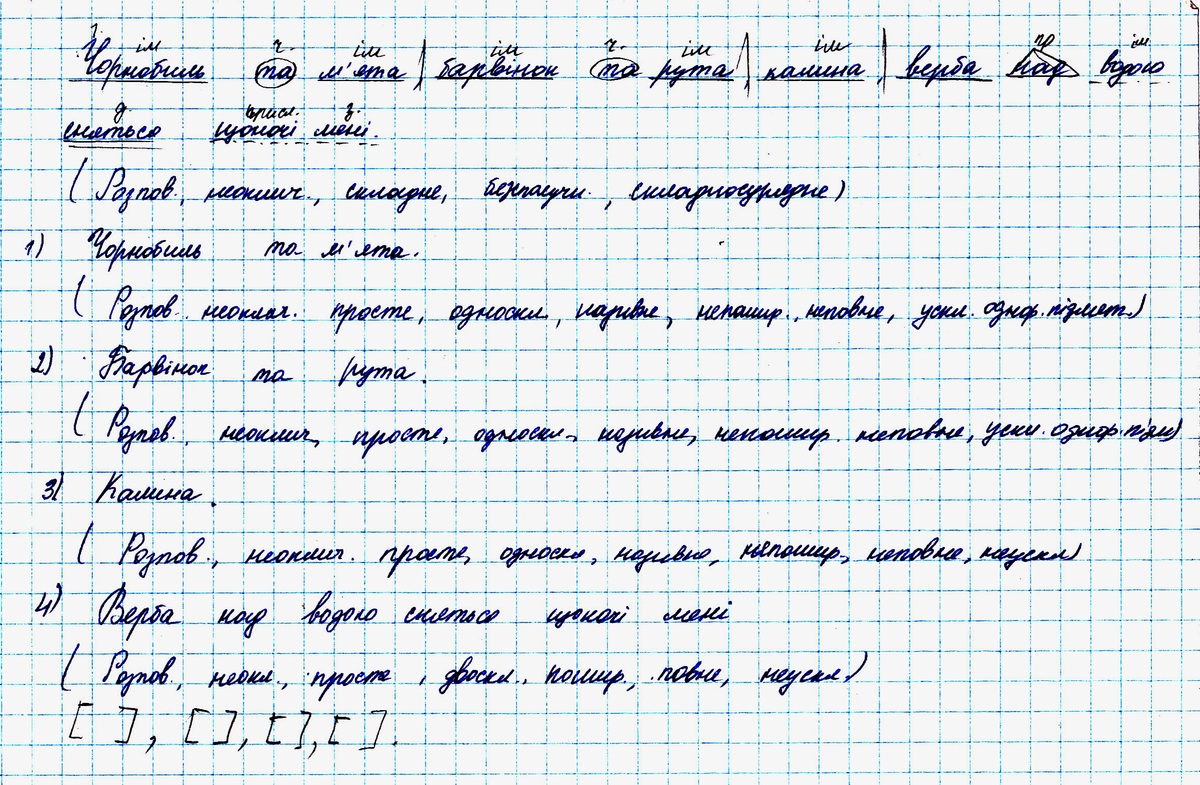 ім ч. ім ім ч. ім ім пр ім
Чорнобиль та м'ята барвінок та рута калина верба над водою
д. присл. з.
сняться щоночі мені.
(Розпов., неоклич., складне, безполучн., складносурядне)
1) Чорнобиль та м'ята.
(Розпов. неоклич. просте, односкл, називне, непошир., неповне, ускл. однор. підмет.)
2) Барвінок та рута.
(Розпов., неоклич, просте, односкл, називне, непошир. неповне, ускл. однор. підм)
3) Калина.
(Розпов., неоклич. просте, односкл, називне, непошир, неповне, неускл)
4) Верба над водою сняться щоночі мені
(Розпов., неокл., просте, двоскл., пошир, повне, неускл.)
[ ], [ ], [ ], [ ].